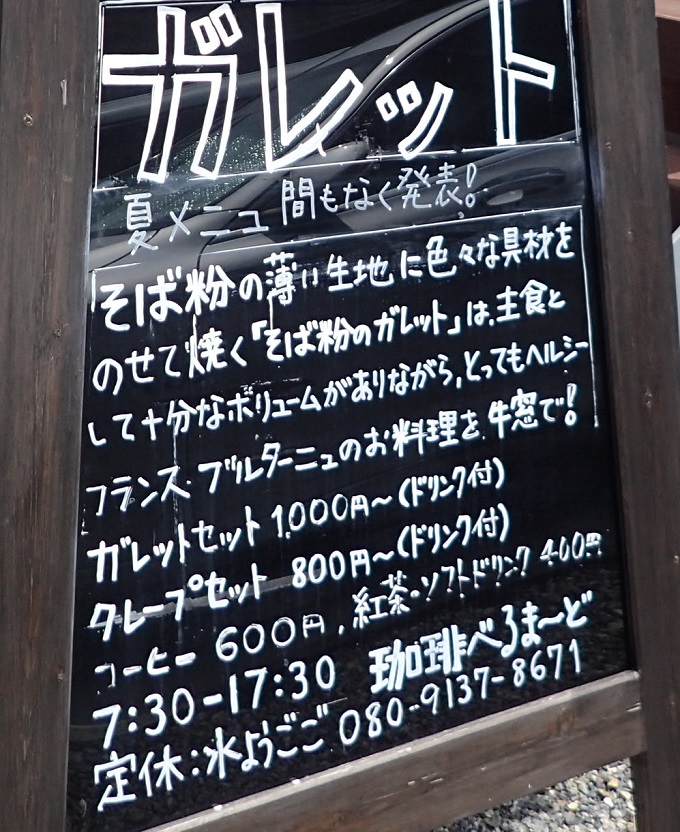 ガレット
夏メニュー間もなく発表!
そば粉の薄い生地に色々な具材を
のせて焼く「そば粉のガレット」は、主食と
して十分なボリュームがありながら、とってもヘルシー
フランス・ブルターニュのお料理を牛窓で!
ガレットセット 1,000円〜(ドリンク付)
クレープセット 800円〜(ドリンク付)
コーヒー 600円、紅茶・ソフトドリンク 400円
7:30-17:30 珈琲べるま〜ど
定休:水ようごご 080-9137-8671